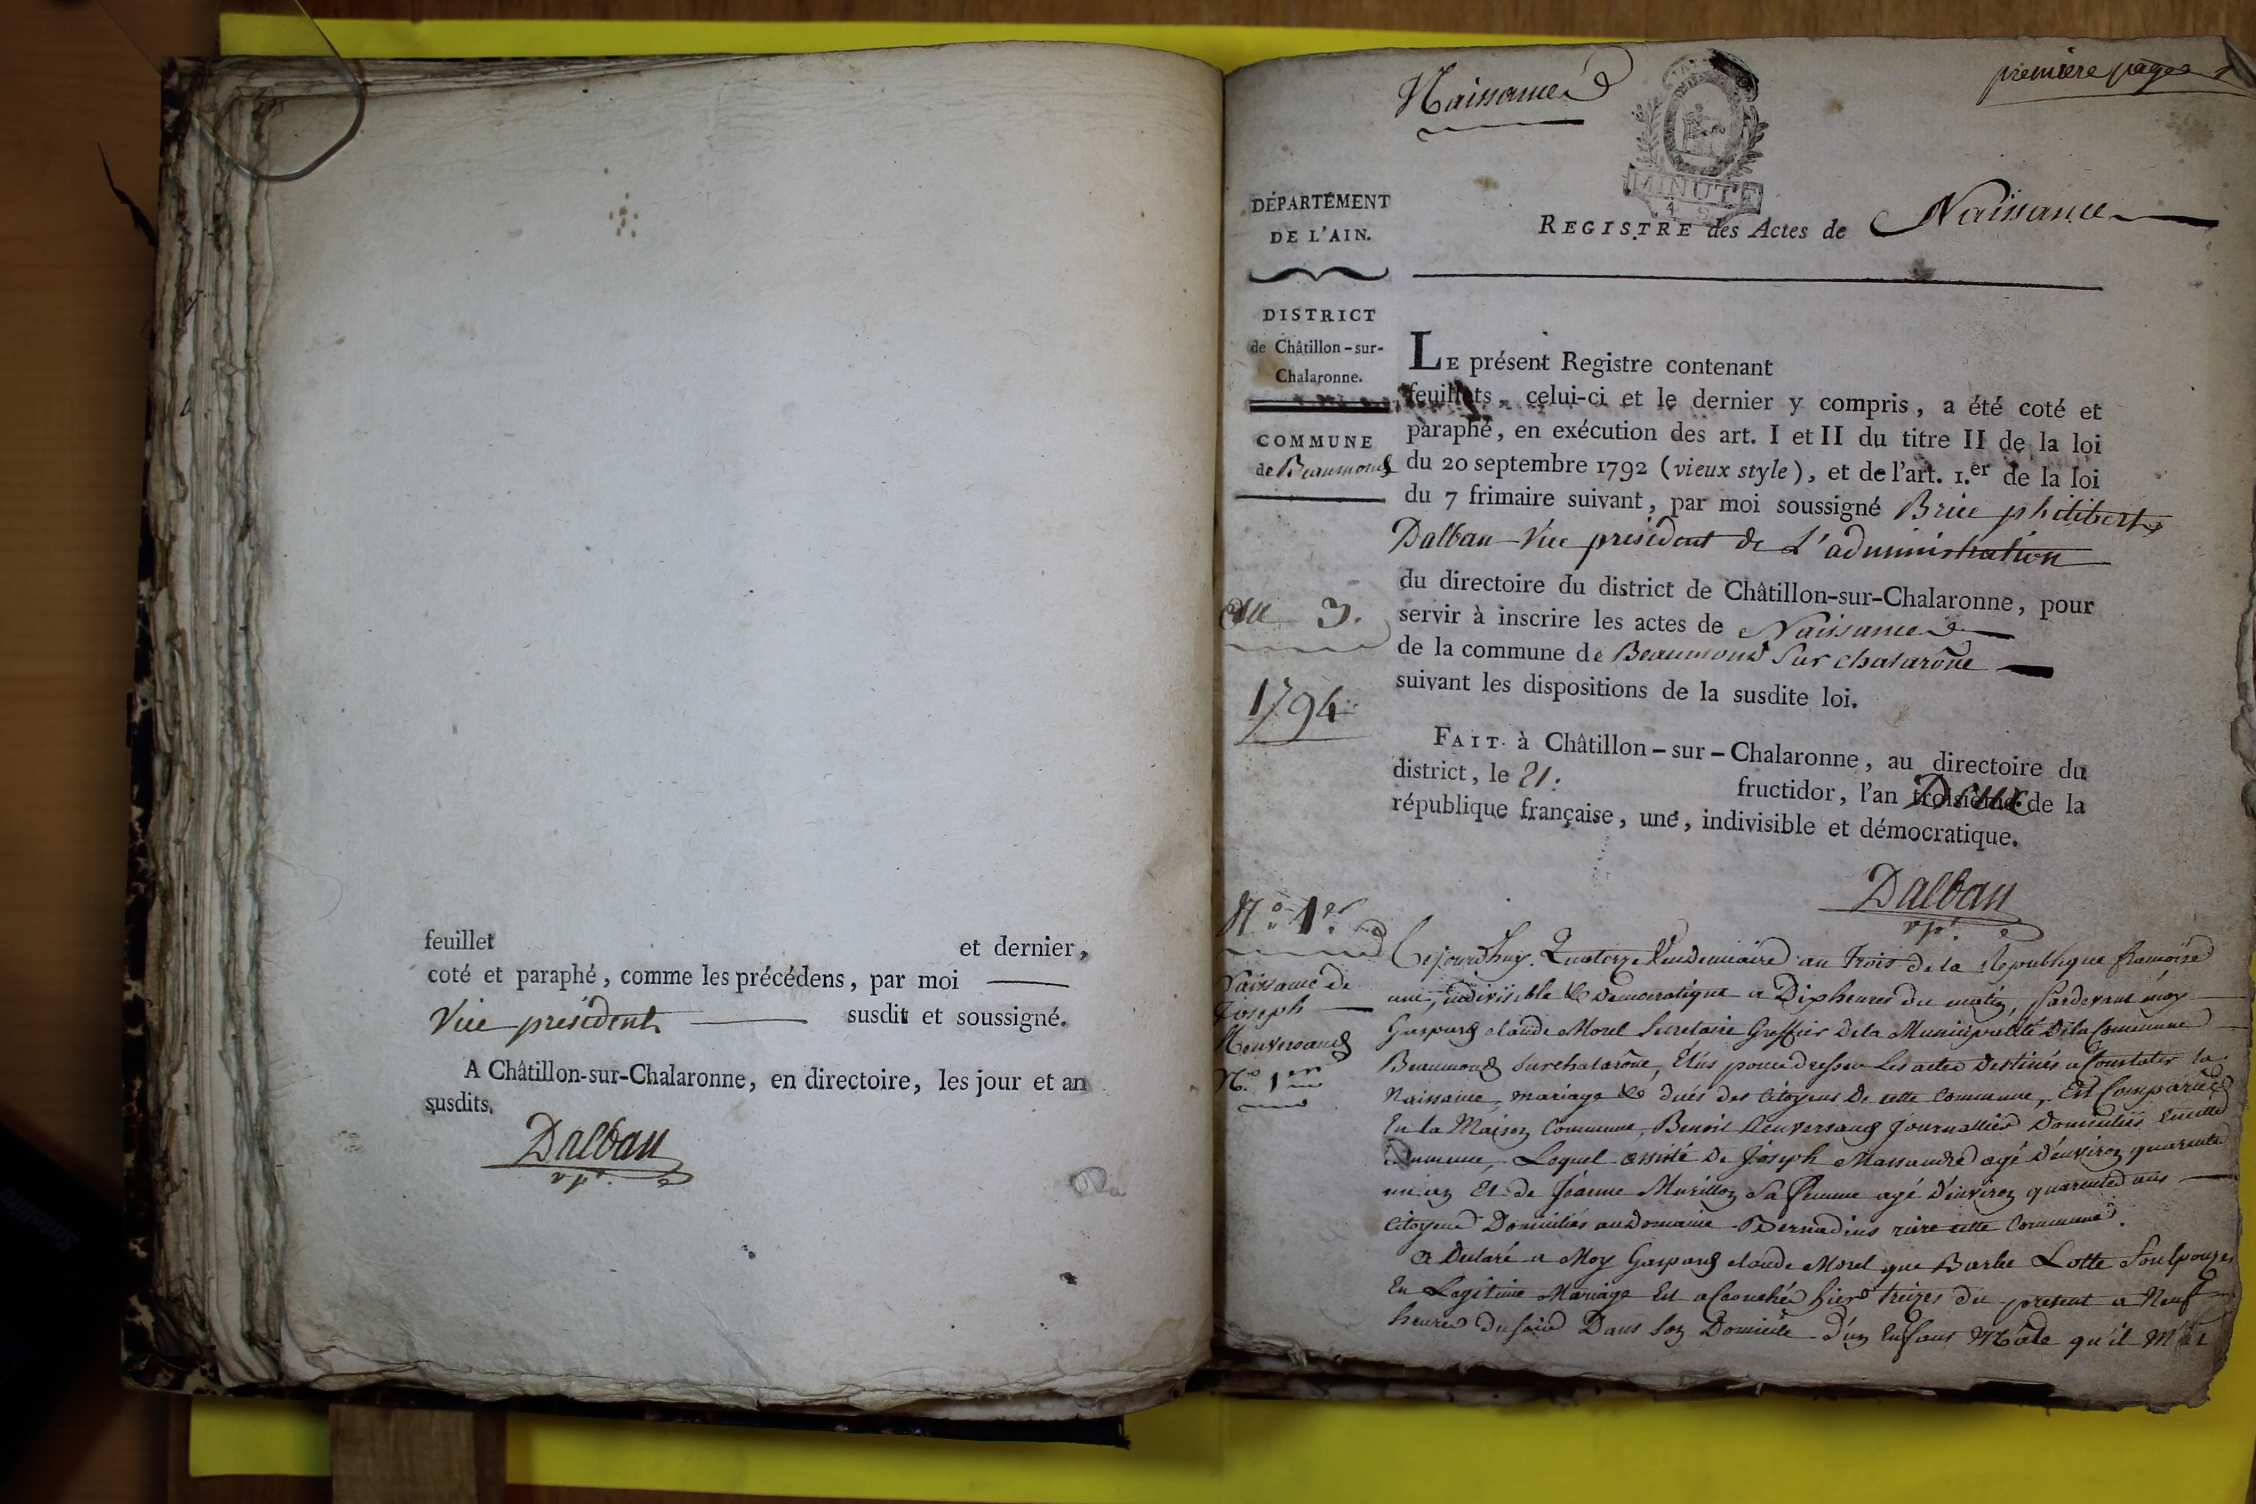 feuillet et dernier,
coté et paraphé, comme les précédens, par moi
Vice president susdit et soussigné.
A Châtillon-sur-Chalaronne, en directoire, les jour et an
susdits.
Dalban
vp.
Naissance
premiere page 1
MINUTE
DÉPARTEMENT
DE L'AIN.
REGISTRE des Actes de Naissance
DISTRICT
de Châtillon-sur-
Chalaronne.
COMMUNE
de Beaumond
LE présent Registre contenant
feuillets, celui-ci et le dernier y compris, a été coté et
paraphé, en exécution des art. I et II du titre II de la loi
du 20 septembre 1792 (vieux style), et de l'art. 1.er de la loi
du 7 frimaire suivant, par moi soussigné Brice philibert
Dalban Vice president de L'administration
du directoire du district de Châtillon-sur-Chalaronne, pour
servir à inscrire les actes de Naissance
de la commune de Beaumond Sur chalarône
suivant les dispositions de la susdite loi.
3.
1794
FAIT à Châtillon-sur-Chalaronne, au directoire du
district, le 21. fructidor, l'an troisieme Deux de la
république française, une, indivisible et démocratique.
Dalban
vp.
N.o 1er
Naissance de
Joseph
N.o 1er
Cejourdhuy Quatorze Vendemiaire an Trois de la Republique francoise
une, indivisible & Democratique a Dix heures du matin, pardevant moy
Gaspard claude Morel Secretaire Greffier De la Municipalité De la Commune
Beaumond Sur chalarône, Elus pour dresser Les actes Destinés a Constater la
Naissance, mariage & décés des Citoyens De cette Commune, Est Comparue
En la Maison Commune, Benoit Journallier Domicilié En cette
Commune, Lequel assisté De Joseph Massandre agé D'environ quarente
un an Et de Jeanne Murillon Sa femme agé D'environ quarente ans
Citoyens Domiciliés au Domaine Bernadius riere cette Commune.
a Declaré a Moy Gaspard claude Morel que Barbe Lotte Son Epouse
En Legitime Mariage Est accouchée hier treizes du present a Neuf
heures du soir Dans son Domicile D'un Enfant Mâle qu'il M'at